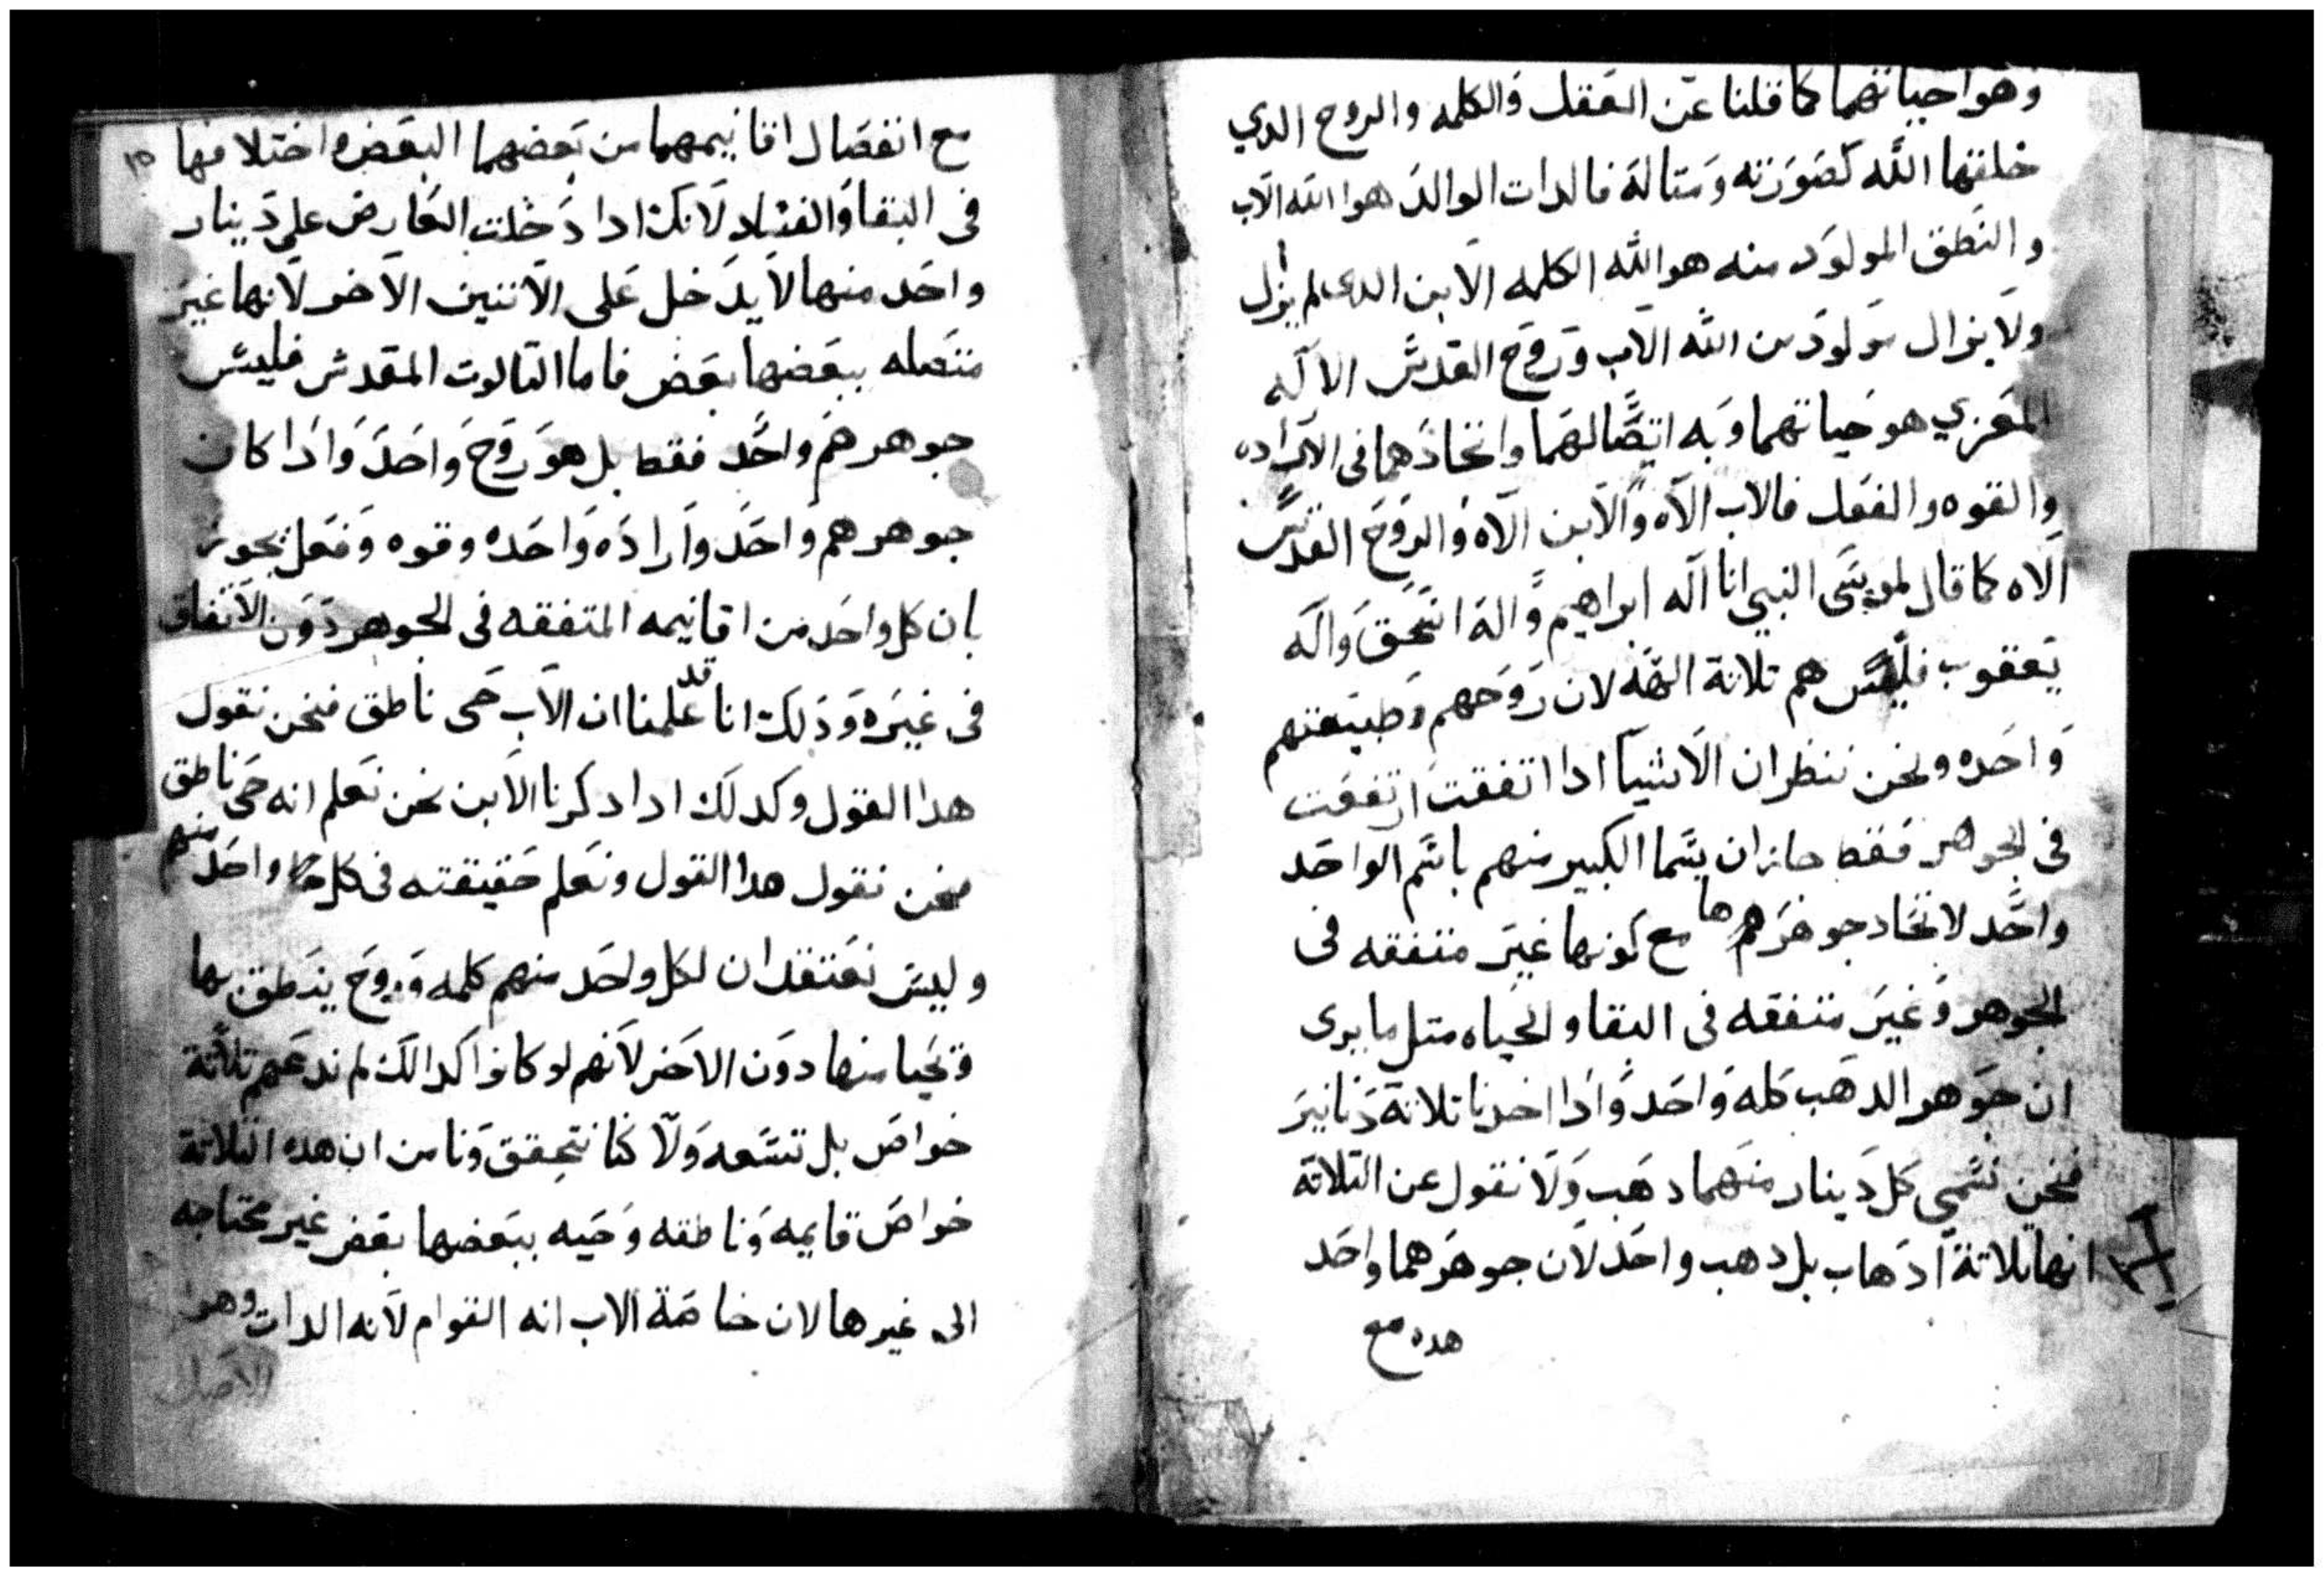 وهو احياتهما كما قلنا عن العقل والكلمه والروح الدي
خلقها الله كصورته ومتاله فالدات الوالد هوا الله الاب
والنطق المولود منه هو الله الكلمه الابن الدى لم يزل
ولا يزال مولود من الله الاب وروح القدس الاله
المعزي هو حياتهما وبه اتصالهما واتحادهما فى الاراده
والقوه والفعل فالاب الاه والابن الاه والروح القدس
الاه كما قال لموسى النبي انا اله ابراهيم واله اسحق واله
يعقوب فليس هم تلاتة الهه لان روحهم وطبيعتهم
واحده ونحن ننظر ان الاشيا ادا اتفقت اتفقت
فى الجوهر فقط جاز ان يسما الكبير منهم باسم الواحد
واحد لاتحاد جوهرها مع كونها غير متفقه فى
الجوهر وغير متفقه فى البقا والحياه متل ما يرى
ان جوهر الدهب كله واحد وادا اخدنا تلاتة دنانير
فنحن نسمي كل دينار منهما دهب ولا نقول عن التلاتة
انها تلاتة ادهاب بل دهب واحد لان جوهرهما واحد
هده مع
١٥
مع انفصال اقانيمهما من بعضهما البعض واختلافها
فى البقا والفساد لانك ادا دخلت العارض على دينار
واحد منها لا يدخل على الاتنين الاخر لانها غير
متصله ببعضها بعض فاما التالوت المقدس فليس
جوهرهم واحد فقط بل هو روح واحد وادا كان
جوهرهم واحد واراده واحده وقوه وفعل يجوز
بان كل واحد من اقانيمه المتفقه فى الجوهر دون الاتفاق
فى غيره ودلك انا قد علمنا ان الاب حى ناطق فنحن نقول
هدا القول وكدلك ادا دكرنا الابن نحن نعلم انه حى ناطق
فنحن نقول هدا القول ونعلم حقيقته فى كل واحد منهم
وليس نعتقد ان لكل واحد منهم كلمه وروح ينطق بها
ويحيا منها دون الاخر لانهم لو كانوا كدالك لم ندعهم تلاتة
خواص بل تسعه ولا كنا نتحقق ونامن ان هده التلاتة
خواص قايمه وناطقه وحيه ببعضها بعض غير محتاجه
الى غيرها لان خاصة الاب انه القوام لانه الدات وهو
الاصل